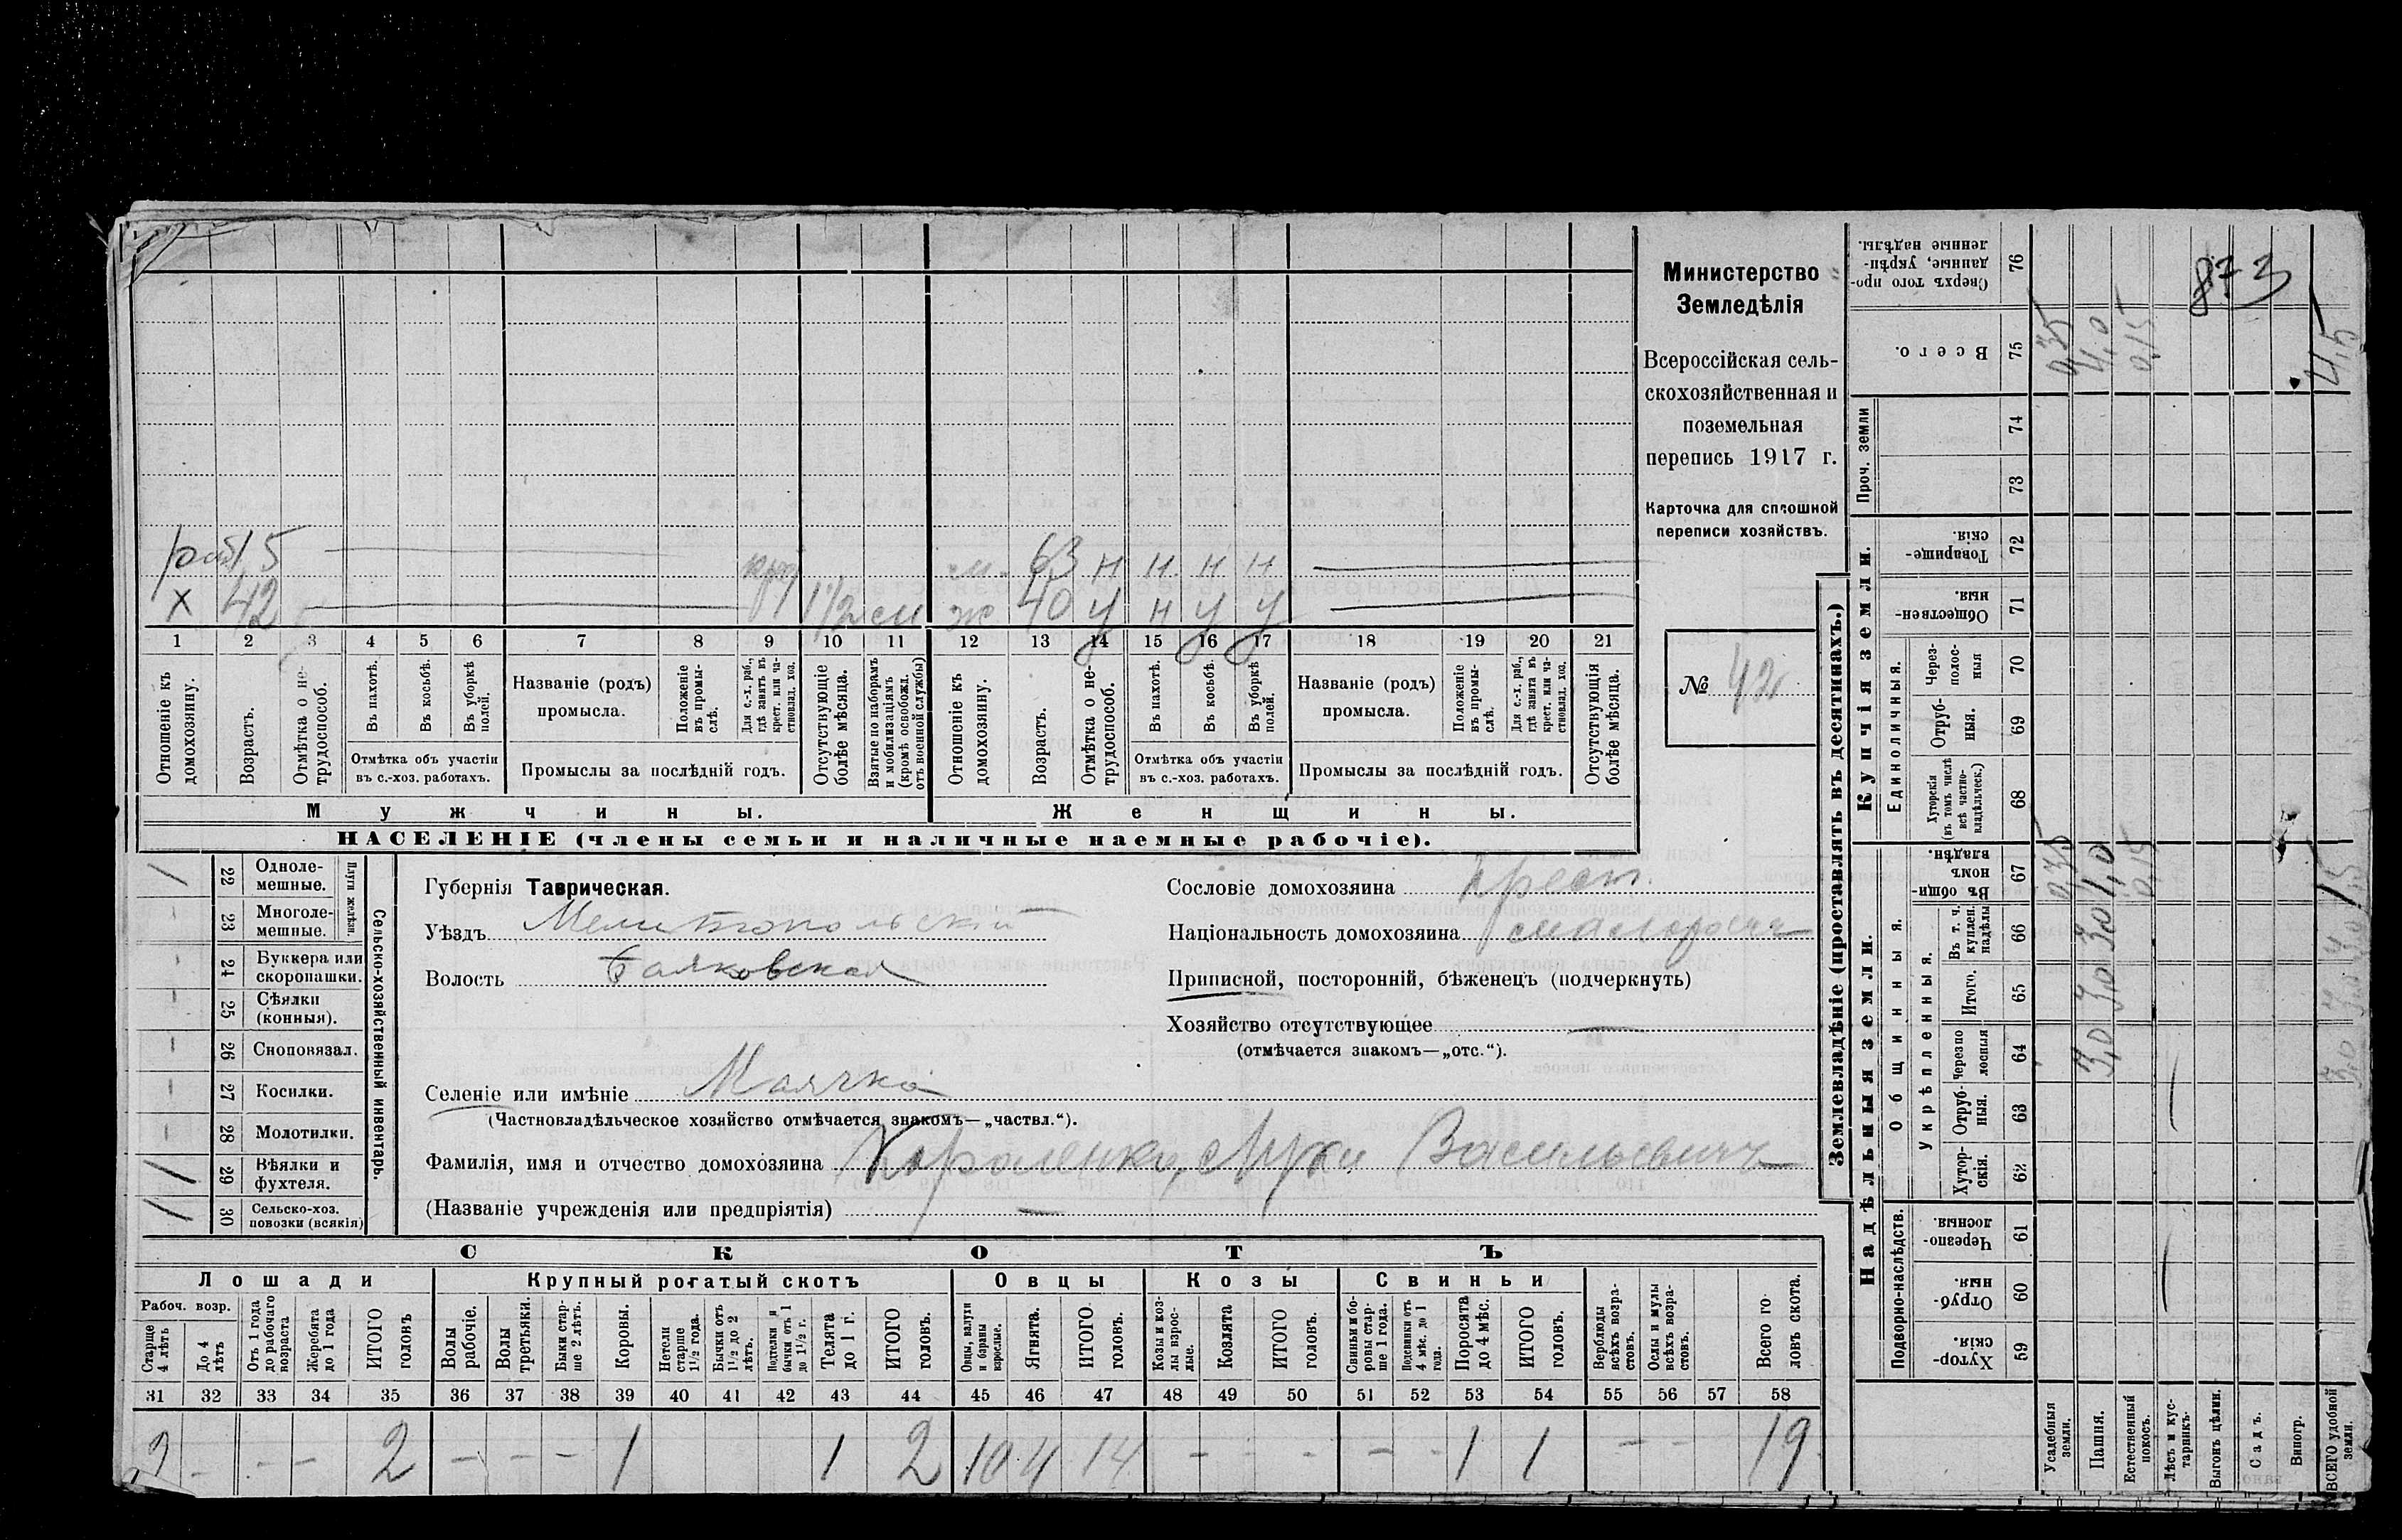 Министерство
Земледѣлія
Всероссійская сель-
скохозяйственная и
поземельная
перепись 1917 г.
Карточка для сплошной
переписи хозяйствъ.
№ 42
раб 15
63 н н н н
х 42 1½ ж 40 у н у у
1 2 3 4 5 6 7 8 9 10 11 12 13 14 15 16 17 18 19 20 21
Отношеніе къ домохозяину.
Возрастъ.
Отмѣтка о не-трудоспособ.
Въ пахотѣ.
Въ косьбѣ.
Въ уборкѣ полей.
Отмѣтка объ участіи
въ с.-хоз. работахъ.
Названіе (родъ)
промысла.
Положеніе въ промы-слѣ.
Для с.-х. раб., гдѣ занятъ въ крест. или ча-стновлад. хоз.
Промыслы за послѣдній годъ.
Отсутствующіе болѣе мѣсяца.
Взятые по наборамъ и мобилизаціямъ (кромѣ освобожл. отъ военной службы)
Отношеніе къ домохозяину.
Возрастъ.
Отмѣтка о не-трудоспособ.
Въ пахотѣ.
Въ косьбѣ.
Въ уборкѣ полей.
Отмѣтка объ участіи
въ с.-хоз. работахъ.
Названіе (родъ)
промысла.
Положеніе въ промы-слѣ.
Для с.-х. раб., гдѣ занята въ крест. или ча-стновлад. хоз.
Промыслы за послѣдній годъ.
Отсутствующія болѣе мѣсяца.
Мужчины.
Женщины.
НАСЕЛЕНІЕ (члены семьи и наличные наемные рабочіе).
Сельско-хозяйственный инвентарь.
Плуги желѣзн.
/ 22 Одноле-мешные.
- 23 Многоле-мешные.
- 24 Буккера или скоропашки.
- 25 Сѣялки (конныя).
- 26 Сноповязал.
- 27 Косилки.
- 28 Молотилки.
/ 29 Вѣялки и фухтеля.
/ 30 Сельско-хоз. повозки (всякія)
Губернія Таврическая.
Уѣздъ Мелитопольскій
Волость Балковская
Селеніе или имѣніе Маячка
(Частновладѣльческое хозяйство отмѣчается знакомъ—„частвл.“).
Фамилія, имя и отчество домохозяина Короленко, Лука Васильевичъ
(Названіе учрежденія или предпріятія) —
Сословіе домохозяина Крест.
Національность домохозяина малороссъ
Приписной, посторонній, бѣженецъ (подчеркнуть)
Хозяйство отсутствующее —
(отмѣчается знакомъ—„отс.“).
СКОТЪ
Лошади
Крупный рогатый скотъ
Овцы
Козы
Свиньи
Рабоч. возр.
Старше 4 лѣтъ
До 4 лѣтъ
Отъ 1 года до рабочаго возраста
Жеребята до 1 года
ИТОГО головъ
Волы рабочіе.
Волы третьяки.
Быки стар-ше 2 лѣтъ.
Коровы.
Нетели старше 1½ года.
Бычки отъ 1½ до 2 лѣтъ.
Подтелки и бычки отъ 1 до 1½ г.
Телята до 1 г.
ИТОГО головъ.
Овцы, валухи и бараны взрослые.
Ягнята.
ИТОГО головъ.
Козы и коз-лы взрос-лые.
Козлята
ИТОГО головъ.
Свиньи и бо-ровы стар-ше 1 года.
Подсвинки отъ 4 мѣс. до 1 года.
Поросята до 4 мѣс.
ИТОГО головъ.
Верблюды всѣхъ возра-стовъ.
Ослы и мулы всѣхъ возра-стовъ.
Всего го-ловъ скота.
31 32 33 34 35 36 37 38 39 40 41 42 43 44 45 46 47 48 49 50 51 52 53 54 55 56 57 58
2 - - - 2 - - - 1 1 2 10 4 14 - - - - - 1 1 - - 19
Землевладѣніе (проставлять въ десятинахъ.)
Надѣльныя земли.
Купчія земли.
Проч. земли
Подворно-наслѣдств.
Общинныя.
Укрѣпленныя.
Единоличныя.
59 Хутор-скія.
60 Отруб-ныя.
61 Черезпо-лосныя.
62 Хутор-скія.
63 Отруб-ныя.
64 Черезпо-лосныя
65 Итого.
66 Въ т. ч. куплен. надѣлы
67 Въ общин-номъ владѣн.
68 Хуторскія (въ томъ числѣ всѣ частно-владѣльческ.)
69 Отруб-ныя.
70 Через-полос-ныя
71 Обществен-ныя.
72 Товарище-скія.
73
74
75 Всего.
76 Сверхъ того про-данные, укрѣп-ленные надѣлы.
Усадебныя земли. 0,35 0,35
Пашня. 3,0 3,0 3,0 1,0 4,0
Естественный покосъ. 0,15 0,15
Лѣсъ и кус-тарникъ.
Выгонъ цѣлин.
Садъ.
Виногр.
ВСЕГО удобной земли. 3,0 3,0 3,0 1,5 4,5
873